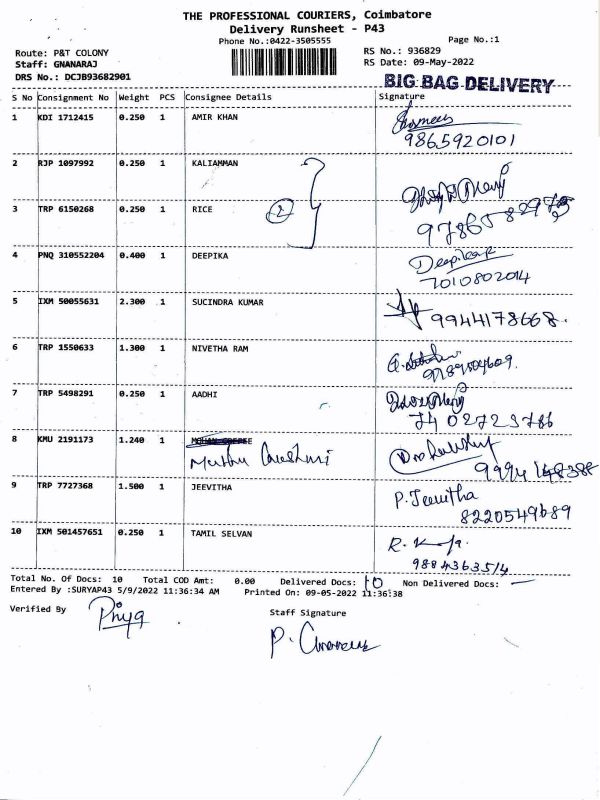 THE PROFESSIONAL COURIERS, Coimbatore
Delivery Runsheet - P43
Phone No.:0422-3505555
Page No.:1
Route: P&T COLONY
RS No.: 936829
Staff: GNANARAJ
RS Date: 09-May-2022
DRS No.: DCJB93682901
BIG BAG DELIVERY
S No Consignment No Weight PCS Consignee Details Signature
1 KDI 1712415 0.250 1 AMIR KHAN
9865920101
2 RJP 1097992 0.250 1 KALIAMMAN
3 TRP 6150268 0.250 1 RICE 2
4 PNQ 310552204 0.400 1 DEEPIKA Deepikaa
7010802014
5 IXM 50055631 2.300 1 SUCINDRA KUMAR
9944178668.
6 TRP 1550633 1.300 1 NIVETHA RAM
7 TRP 5498291 0.250 1 AADHI
7402723786
8 KMU 2191173 1.240 1
9994148388
9 TRP 7727368 1.500 1 JEEVITHA P. Jeevitha
8220549689
10 IXM 501457651 0.250 1 TAMIL SELVAN
Total No. Of Docs: 10 Total COD Amt: 0.00 Delivered Docs: 10 Non Delivered Docs: —
Entered By :SURYAP43 5/9/2022 11:36:34 AM Printed On: 09-05-2022 11:36:38
Verified By Priya
Staff Signature